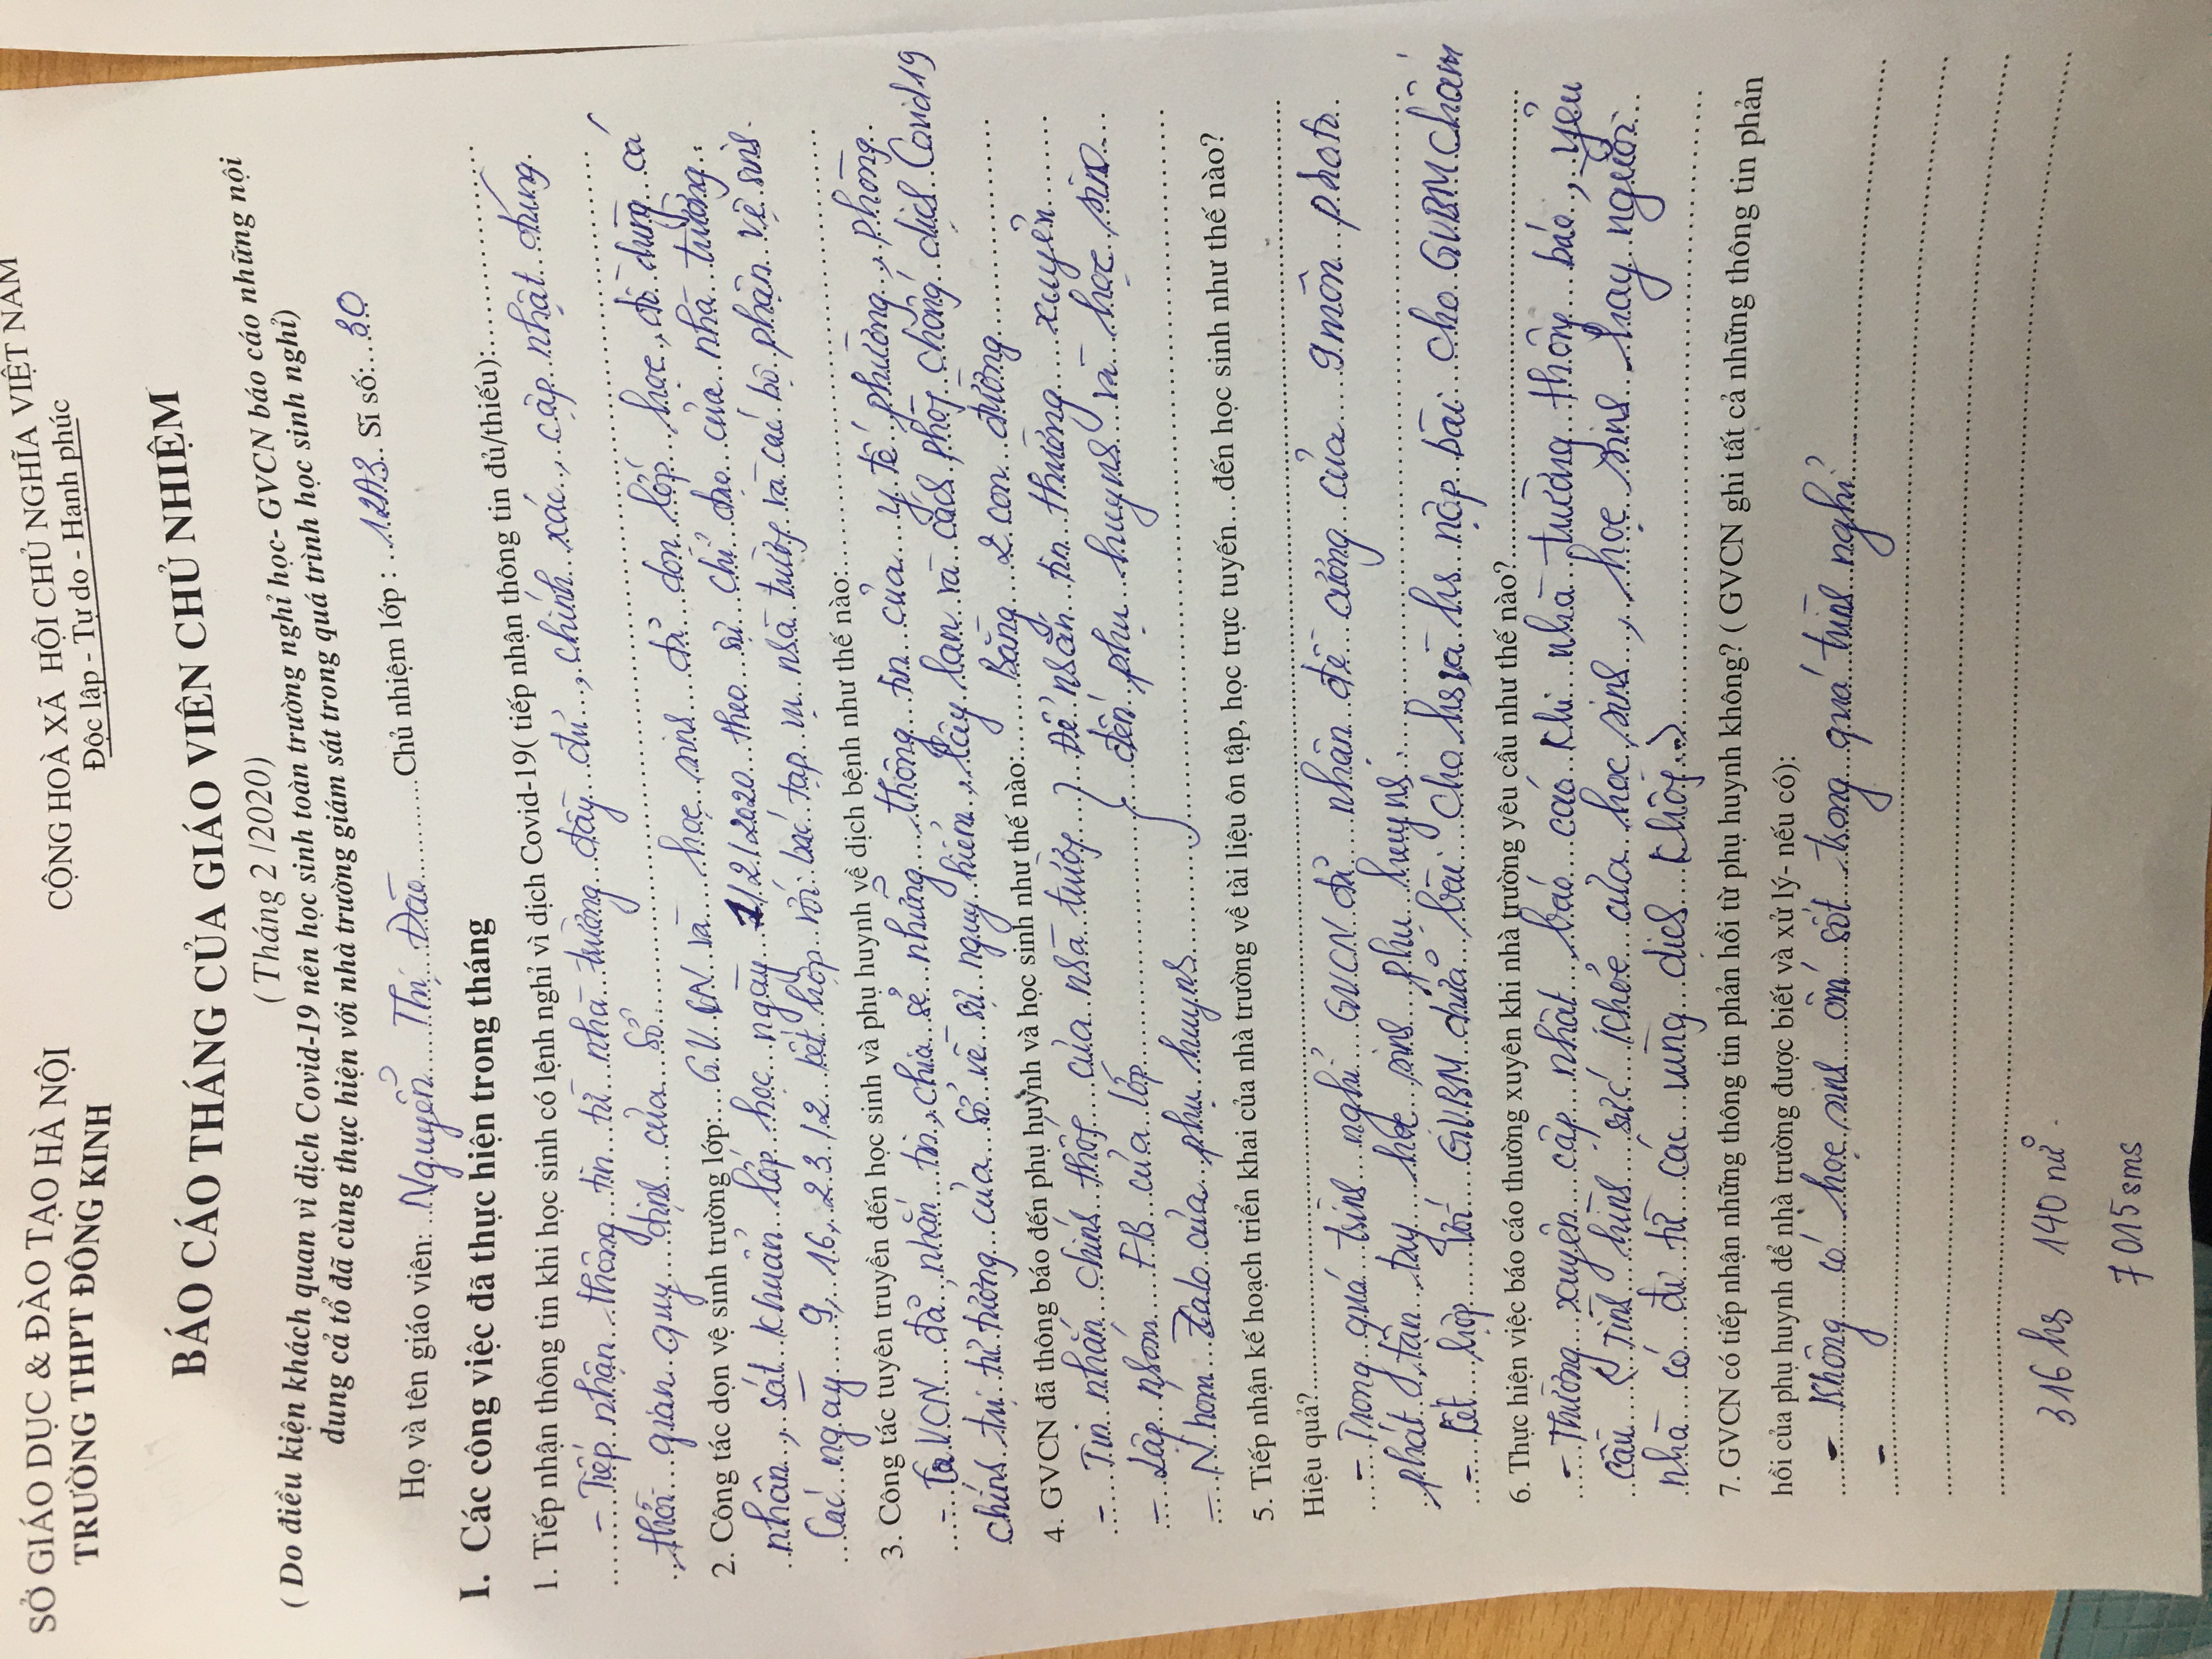 SỞ GIÁO DỤC & ĐÀO TẠO HÀ NỘI CỘNG HOÀ XÃ HỘI CHỦ NGHĨA VIỆT NAM
TRƯỜNG THPT ĐÔNG KINH Độc lập - Tự do - Hạnh phúc
BÁO CÁO THÁNG CỦA GIÁO VIÊN CHỦ NHIỆM
( Tháng 2 /2020)
( Do điều kiện khách quan vì dịch Covid-19 nên học sinh toàn trường nghỉ học- GVCN báo cáo những nội
dung cả tổ đã cùng thực hiện với nhà trường giám sát trong quá trình học sinh nghỉ)
Họ và tên giáo viên: Nguyễn Thị Đào Chủ nhiệm lớp : 12A3 Sĩ số: 30
I. Các công việc đã thực hiện trong tháng
1. Tiếp nhận thông tin khi học sinh có lệnh nghỉ vì dịch Covid-19( tiếp nhận thông tin đủ/thiếu):
- Tiếp nhận thông tin từ nhà trường đầy đủ, chính xác, cập nhật đúng
thời gian quy định của Sở
2. Công tác dọn vệ sinh trường lớp: GVCN và học sinh đã dọn lớp học, đồ dùng cá
nhân, sát khuẩn lớp học ngày 1/2/2020 theo sự chỉ đạo của nhà trường.
Các ngày 9, 16, 23/2 kết hợp với bác tạp vụ nhà trường và các bộ phận vệ sinh.
3. Công tác tuyên truyền đến học sinh và phụ huynh về dịch bệnh như thế nào:
- GVCN đã nhắn tin, chia sẻ những thông tin của y tế phường, phòng
chính trị tư tưởng của Sở về sự nguy hiểm, lây lan và cách phòng chống dịch Covid19
4. GVCN đã thông báo đến phụ huynh và học sinh như thế nào: bằng 2 con đường
- Tin nhắn chính thống của nhà trường } Để nhắn tin thường xuyên
- Lập nhóm FB của lớp đến phụ huynh và học sinh
- Nhóm Zalo của phụ huynh
5. Tiếp nhận kế hoạch triển khai của nhà trường về tài liệu ôn tập, học trực tuyến…đến học sinh như thế nào?
Hiệu quả?
- Trong quá trình nghỉ GVCN đã nhận đề cương của 9 môn photo
phát tận tay học sinh, phụ huynh.
- Kết hợp với GVBM chữa bài cho hs và hs nộp bài cho GVBM chấm
6. Thực hiện việc báo cáo thường xuyên khi nhà trường yêu cầu như thế nào?
- Thường xuyên cập nhật báo cáo khi nhà trường thông báo, yêu
cầu (Tình hình sức khỏe của học sinh, học sinh hay người
nhà có đi từ các vùng dịch không)
7. GVCN có tiếp nhận những thông tin phản hồi từ phụ huynh không? ( GVCN ghi tất cả những thông tin phản
hồi của phụ huynh để nhà trường được biết và xử lý- nếu có):
- Không có học sinh ốm sốt trong quá trình nghỉ
-
316 hs 140 nữ.
7 015 sms